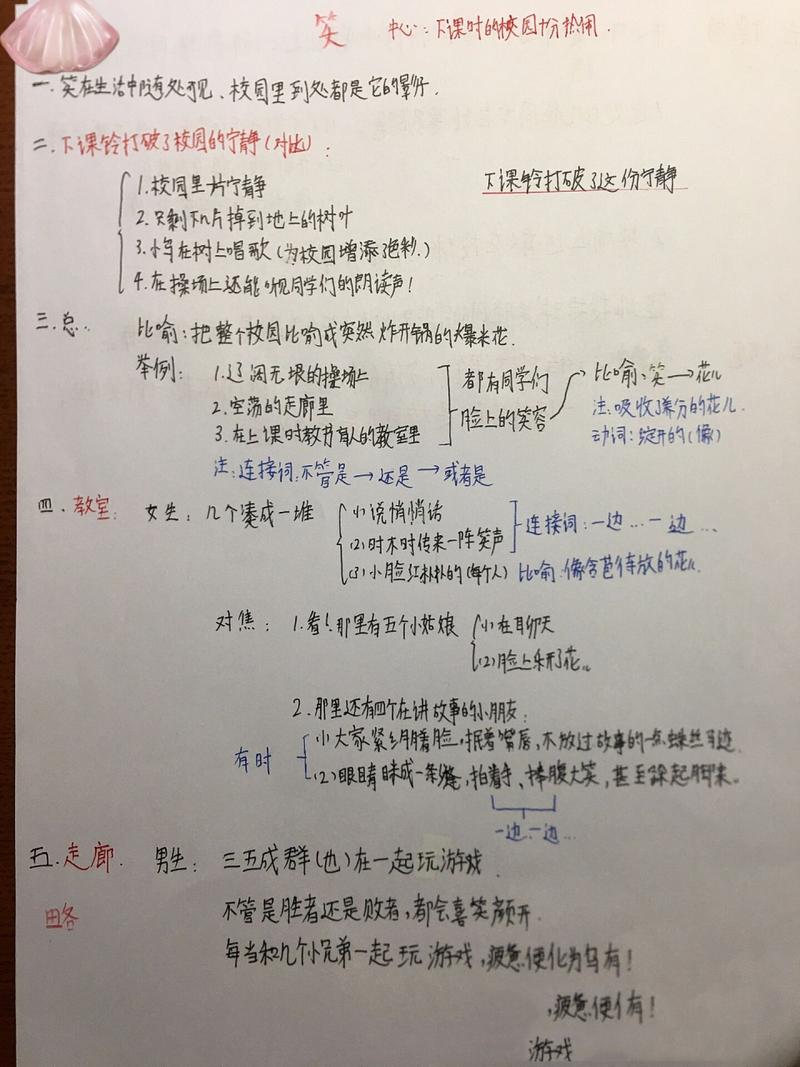 笑 中心：下课时的校园十分热闹.
一.笑在生活中随处可见、校园里到处都是它的影子.
二.下课铃打破了校园的宁静(对比)：
1.校园里一片宁静
下课铃打破了这份宁静
2.只剩下几片掉到地上的树叶
3.小鸟在树上唱歌(为校园增添了色彩.)
4.在操场上还能听见同学们的朗读声！
三.总..
比喻：把整个校园比喻成突然炸开锅的爆米花.
举例：1.辽阔无垠的操场上
2.空荡的走廊里
3.在上课时教书育人的教室里
都有同学们
脸上的笑容
比喻：笑→花儿
注：吸收了养分的花儿.
动词：绽开的(像)
注：连接词：不管是→还是→或者是
四.教室：女生：几个凑成一堆
(1)说悄悄话
(2)时不时传来一阵笑声
连接词：一边...一边...
(3)小脸红朴朴的(每个人)比喻：像含苞待放的花儿.
对焦：1.看！那里有五个小姑娘
(1)在聊天
(2)脸上乐开了花。
2.那里还有四个在讲故事的小朋友：
有时
(1)大家紧绷着脸，抿着嘴唇，不放过故事的一点蛛丝马迹.
(2)眼睛眯成一条缝，拍着手、捧腹大笑，甚至跺起脚来。
一边...一边...
五.走廊.男生：三五成群(也)在一起玩游戏.
不管是胜者还是败者，都会喜笑颜开.
每当和几个小兄弟一起玩游戏，疲惫便化为乌有！
，疲惫便有！
游戏